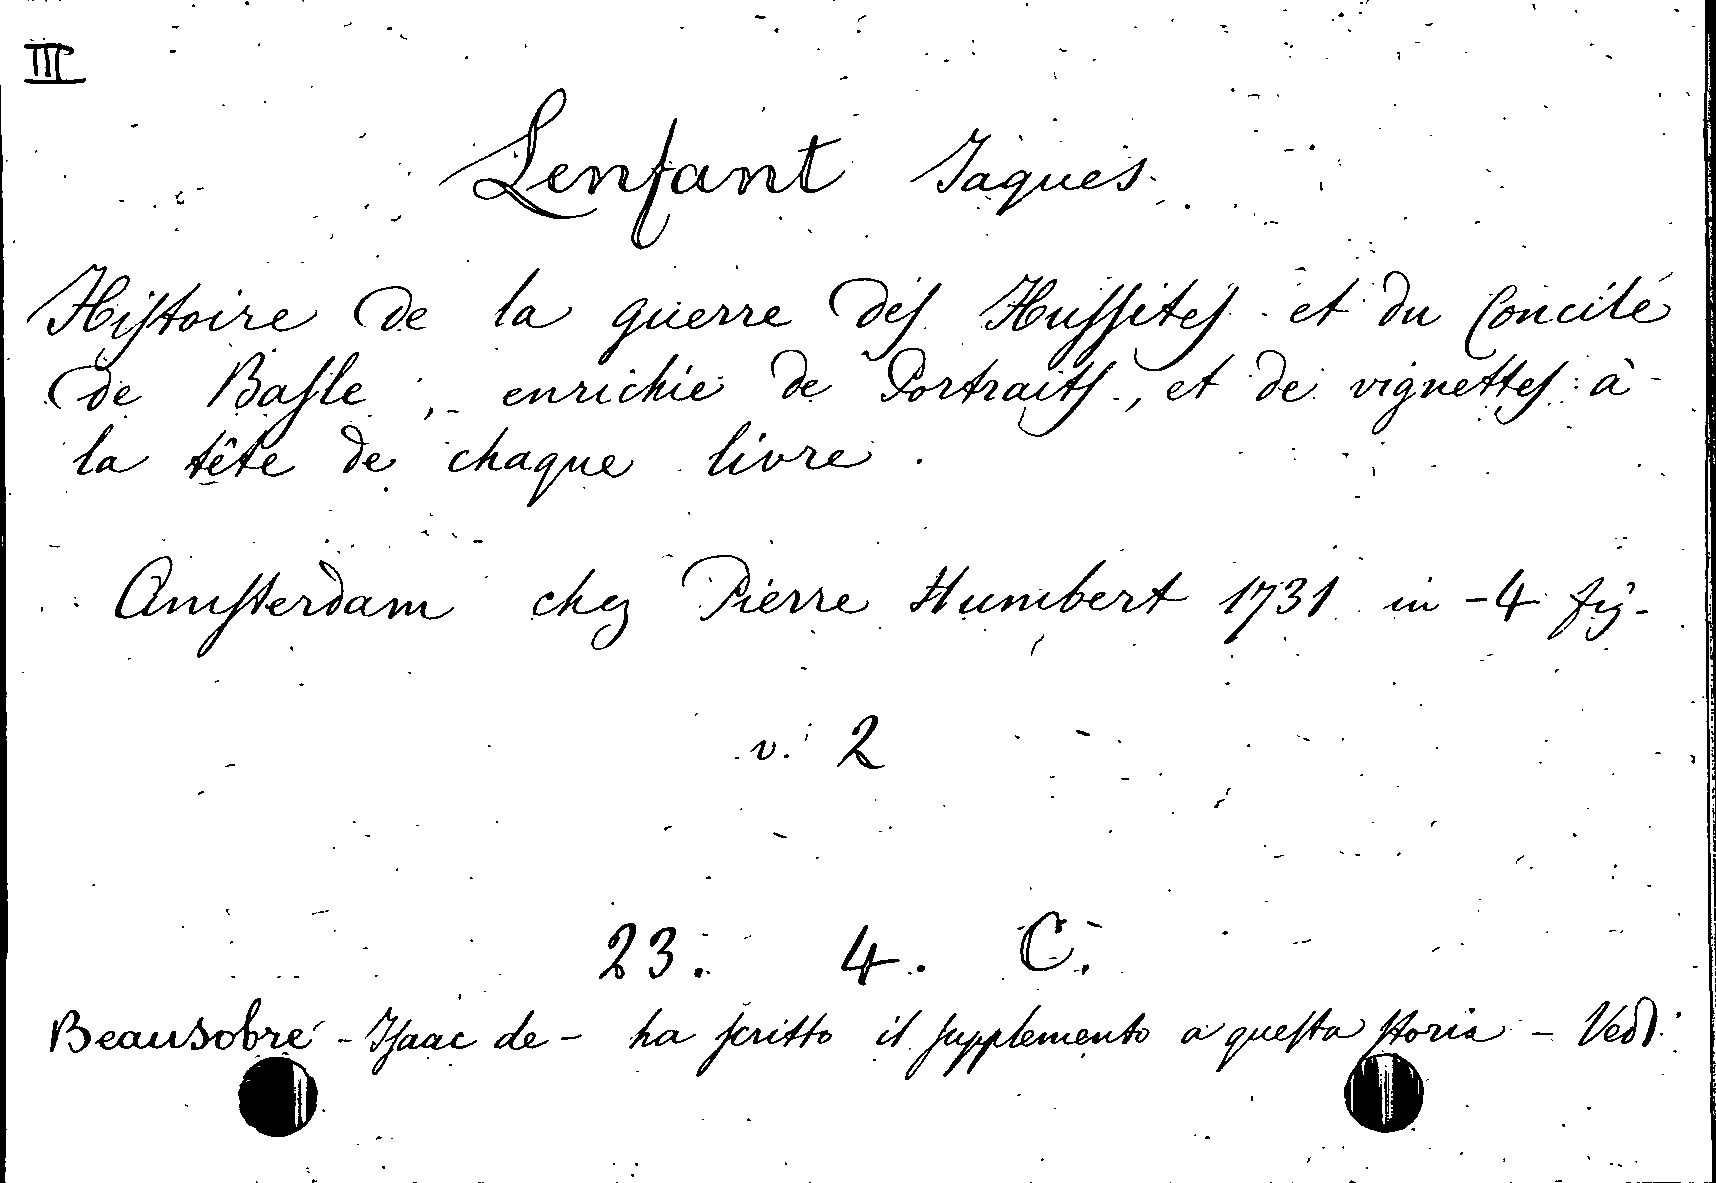 III
Lenfant Jaques.
Histoire de la guerre des Hussites et du Concile
de Basle, enrichie de Portraits, et de vignettes à
la tête de chaque livre.
Amsterdam chez Pierre Humbert 1731 in-4 fig.
v. 2
23. 4. C.
Beausobre - Isaac de - ha scritto il supplemento a questa storia - Vedi